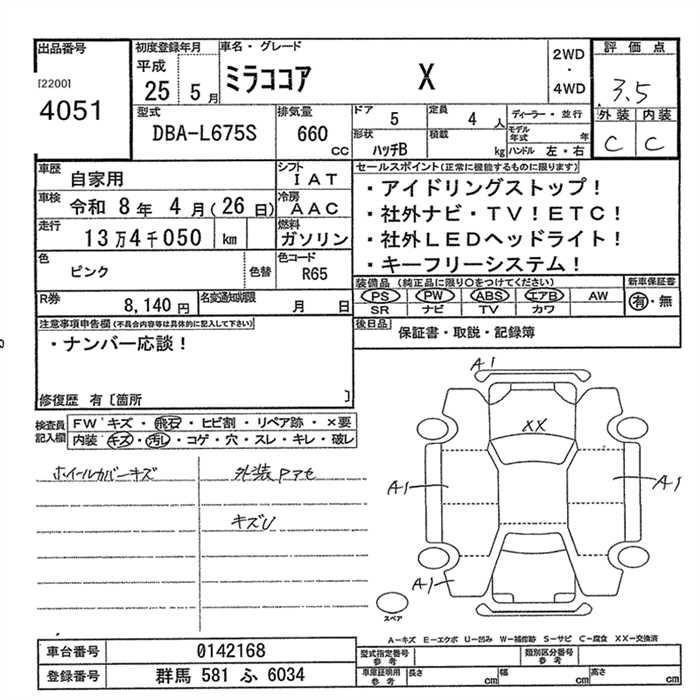 出品番号
[2200]
4051
初度登録年月
平成
25 5月
車名・グレード
ミラココア X
2WD
・
4WD
評価点
3.5
外装 内装
C C
型式
DBA-L675S
排気量
660
CC
ドア
5
定員
4人
ディーラー・並行
形状
ハッチB
積載
kg
モデル年式
年
ハンドル 左・右
車歴
自家用
シフト
IAT
車検
令和 8年 4月(26日)
冷房
AAC
走行
13万4千050 km
燃料
ガソリン
色
ピンク
色替
色コード
R65
R券
8,140円
名変通知期限
月 日
セールスポイント(正常に機能するものに限ります)
・アイドリングストップ!
・社外ナビ・TV!ETC!
・社外LEDヘッドライト!
・キーフリーシステム!
装備品(純正品に限り○をつけてください)
PS PW ABS エアB AW
SR ナビ TV カワ
新車保証書
有・無
後日品
保証書・取説・記録簿
注意事項申告欄(不具合内容等は具体的に記入して下さい)
・ナンバー応談!
修復歴 有〔箇所 〕
検査員記入欄
FW キズ・飛石・ヒビ割・リペア跡・×要
内装 キズ・汚し・コゲ・穴・スレ・キレ・破レ
ホイールカバーキズ
外装Pアセ
キズU
A1
XX
A1
A1
A1
スペア
A-キズ E-エクボ U-凹み W-補修跡 S-サビ C-腐食 XX-交換済
車台番号
0142168
登録番号
群馬 581 ふ 6034
型式指定番号
参考
類別区分番号
参考
車庫証明用
参考
長さ cm
幅 cm
高さ cm